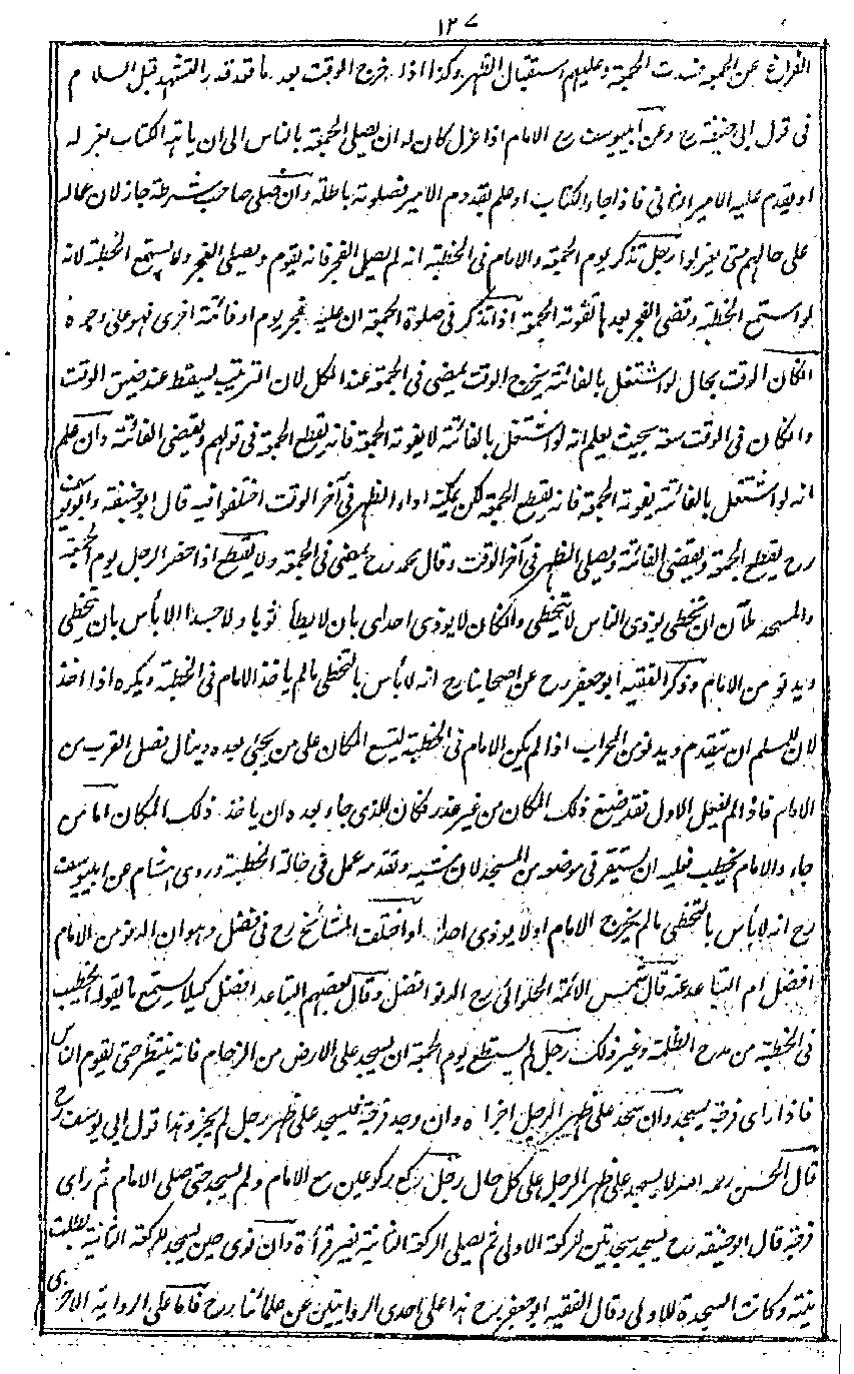 ١٢٧
الفراغ عن الجمعة فسدت الجمعة وعليهم استقبال الظهر وكذا اذا خرج الوقت بعد ما قعد قدر التشهد قبل السلام
فى قول ابى حنيفة رح وعن ابيوسف رح الامام اذا عزل كان له ان يصلى الجمعة بالناس الى ان ياتيه الكتاب بعزله
او يقدم عليه الامير الثانى فاذا جاء الكتاب او علم بقدوم الامير فصلوته باطلة وان صلى صاحب شرطة جاز لان عماله
على حالهم حتى يعزلوا رجل تذكر يوم الجمعة والامام فى الخطبة انه لم يصل الفجر فانه يقوم ويصلى الفجر ولا يستمع الخطبة لانه
لو استمع الخطبة وقضى الفجر بعدها تفوته الجمعة اذا تذكر فى صلوة الجمعة ان عليه فجر يوم او فائتة اخرى فهو على وجوه
انكان الوقت بحال لو اشتغل بالفائتة يخرج الوقت يمضى فى الجمعة عند الكل لان الترتيب يسقط عند ضيق الوقت
وانكان فى الوقت سعة بحيث يعلم انه لو اشتغل بالفائتة لا يفوته الجمعة فانه يقطع الجمعة فى قولهم ويقضى الفائتة وان علم
انه لو اشتغل بالفائتة يفوته الجمعة فانه يقطع الجمعة لكن يمكنه اداء الظهر فى آخر الوقت اختلفوا فيه قال ابو حنيفة وابويوسف
رح يقطع الجمعة ويقضى الفائتة ويصلى الظهر فى آخر الوقت وقال محمد رح يمضى فى الجمعة ولا يقطع اذا حضر الرجل يوم الجمعة
والمسجد ملآن ان تخطى يوذى الناس لا يتخطى وانكان لا يوذى احدا بان لا يطأ ثوبا ولا جسدا لا بأس بان يتخطى
ويدنو من الامام وذكر الفقيه ابو جعفر رح عن اصحابنا رح انه لا بأس بالتخطى ما لم ياخذ الامام فى الخطبة ويكره اذا اخذ
لان للمسلم ان يتقدم ويدنو من المحراب اذا لم يكن الامام فى الخطبة ليتسع المكان على من يجئ بعده وينال فضل القرب من
الامام فاذا لم يفعل الاول فقد ضيع ذلك المكان من غير عذر فكان للذى جاء بعده ان ياخذ ذلك المكان اما من
جاء والامام يخطب فعليه ان يستقر فى موضعه من المسجد لان مشيه وتقدمه عمل فى حالة الخطبة وروى هشام عن ابيوسف
رح انه لا بأس بالتخطى ما لم يخرج الامام او لا يوذى احدا او اختلف المشائخ رح فى فضل وهو ان الدنو من الامام
افضل ام التباعد عنه قال شمس الائمة الحلوائى رح الدنو افضل وقال بعضهم التباعد افضل كيلا يستمع ما يقوله الخطيب
فى الخطبة من مدح الظلمة وغير ذلك رجل لم يستطع يوم الجمعة ان يسجد على الارض من الزحام فانه ينتظر حتى يقوم الناس
فاذا راى فرجة يسجد وان سجد على ظهر الرجل اجزاه وان وجد فرجة فيسجد على ظهر رجل لم يجز وهذا قول ابى يوسف رح
قال الحسن رحمه الله لا يسجد على ظهر الرجل على كل حال رجل ركع ركوعين مع الامام ولم يسجد حتى صلى الامام ثم راى
فرجة قال ابو حنيفة رح يسجد سجدتين للركعة الاولى ثم يصلى الركعة الثانية بغير قرأة وان نوى حين يسجد للركعة الثانية بطلت
نيته وكانت السجدة للاولى وقال الفقيه ابو جعفر رح هذا على احدى الروايتين عن علمائنا رح فاما على الرواية الاخرى